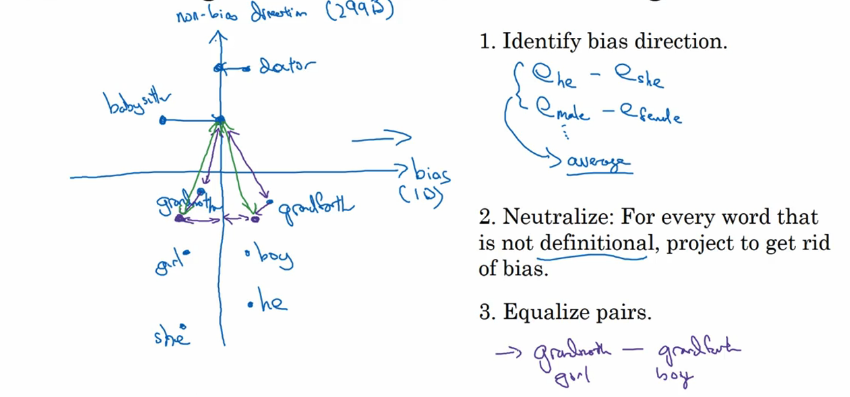 non-bias direction (299D)
doctor
babysitter
bias
(1D)
grandmoth
grandfath
girl
boy
he
she
1. Identify bias direction.
e he - e she
e male - e female
⋮
→ average
2. Neutralize: For every word that
is not definitional, project to get rid
of bias.
3. Equalize pairs.
→ grandmoth - grandfath
girl boy